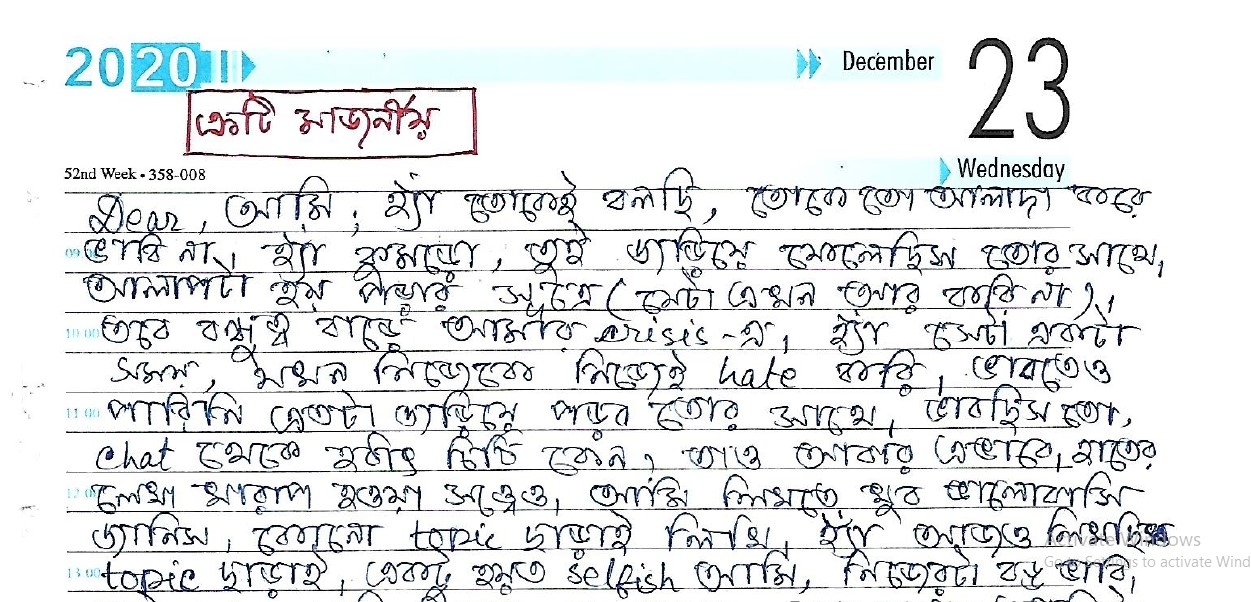 2020
December 23
একটি মার্জনীয়
52nd Week • 358-008
Wednesday
Dear, আমি, হ্যাঁ তোকেই বলছি, তোকে তো আলাদা করে
09 00 ভাবি না, হ্যাঁ কুমড়ো, তুই জড়িয়ে ফেলেছিস তোর সাথে,
আলাপটা হয় পড়ার সূত্রে (যেটা এখন আর করি না),
10 00 তবে বন্ধুত্ব বাড়ে আমার crisis-এ, হ্যাঁ সেটা একটা
সময়, যখন নিজেকে নিজেই hate করি, ভাবতেও
11 00 পারিনি এতটা জড়িয়ে পড়ব তোর সাথে, ভাবছিস তো,
chat থেকে হঠাৎ চিঠি কেন, তাও আবার এভাবে, হাতের
12 00 লেখা খারাপ হওয়া সত্ত্বেও, আমি লিখতে খুব ভালোবাসি
জানিস, কোনো topic ছাড়াই লিখি, হ্যাঁ আজও লিখছি
13 00 topic ছাড়াই, একটু হয়ত selfish আমি, নিজেরটা বড্ড ভাবি,
Activate Windows
Go to Settings to activate Wind